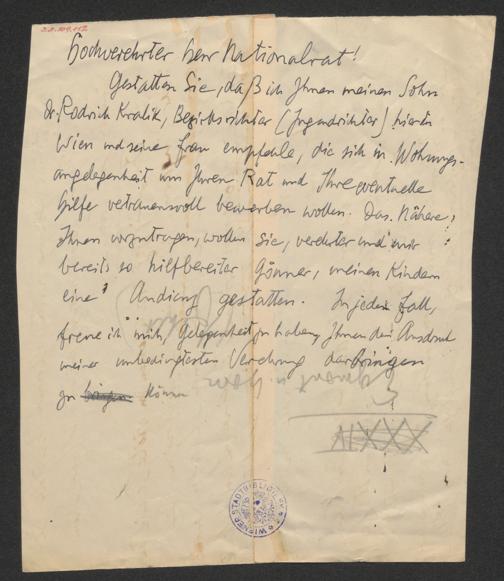 Hochverehrter Herr Nationalrat!
Gestatten Sie, daß ich Ihnen meinen Sohn
Dr. Rodrich Kralik, Bezirksrichter (Jugendrichter) hier in
Wien und seine Frau empfehle, die sich in Wohnungs-
angelegenheit um Ihren Rat und Ihre eventuelle
Hilfe vertrauensvoll bewerben wollen. Das Nähere
Ihnen vorzutragen, wollen Sie, verehrter und mir
bereits so hilfbereiter Gönner, meinen Kindern
eine Audienz gestatten. In jedem Fall,
freue ich mich, Gelegenheit zu haben, Ihnen den Ausdruck
meiner unbedingtesten Verehrung darbringen
zu können
XXXIV
WIENER STADTBIBLIOTHEK